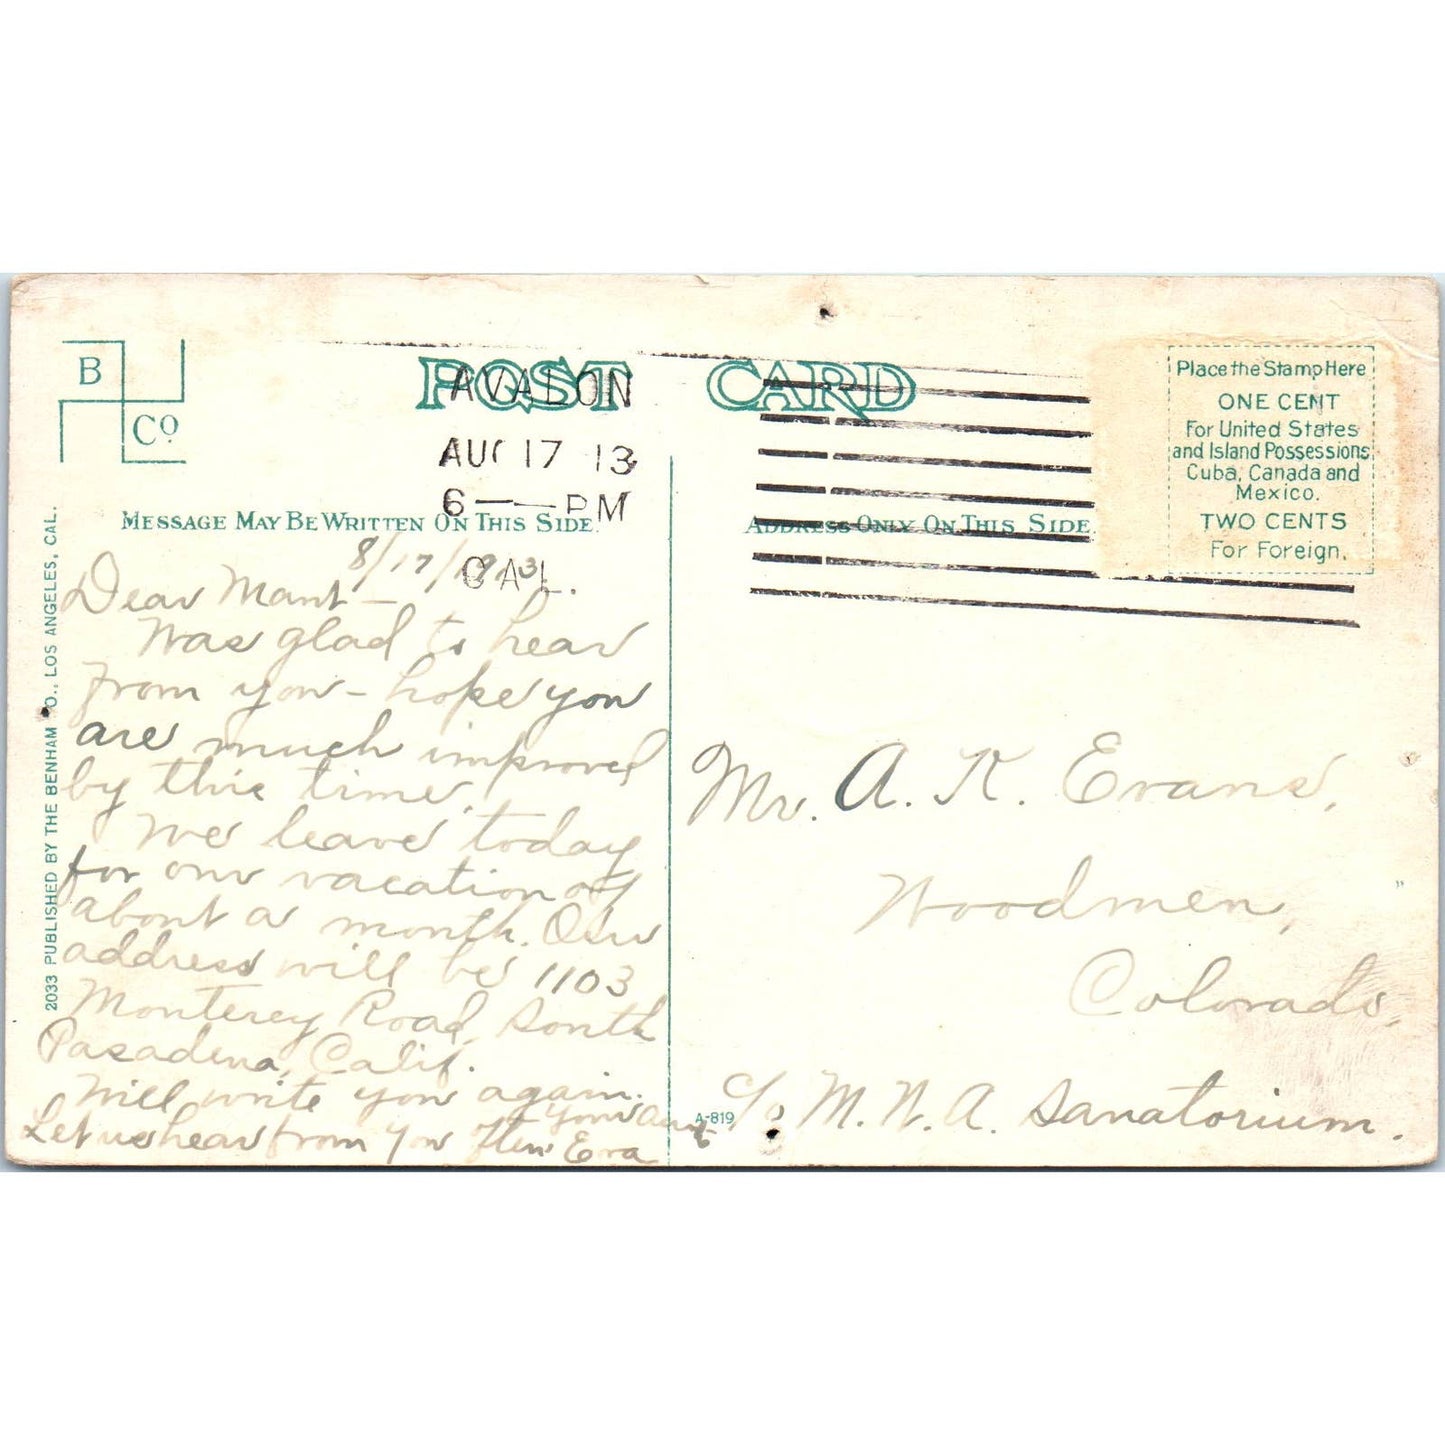 B
Co
POST CARD
AVALON
AUG 17 13
6 — PM
CAL.
Place the Stamp Here
ONE CENT
For United States
and Island Possessions,
Cuba, Canada and
Mexico.
TWO CENTS
For Foreign.
MESSAGE MAY BE WRITTEN ON THIS SIDE.
ADDRESS ONLY ON THIS SIDE
2033 PUBLISHED BY THE BENHAM CO., LOS ANGELES, CAL.
8/17/1913
Dear
Was glad to hear
from you - hope you
are much improved
by this time.
We leave today
for our vacation of
about a month. Our
address will be 1103
Monterey Road, South
Pasadena, Calif.
Will write you again.
Let us hear from you often
your aunt
Eva
A-819
Mr. A. K. Evans,
Woodmen,
Colorado,
c/o M. W. A. Sanatorium.